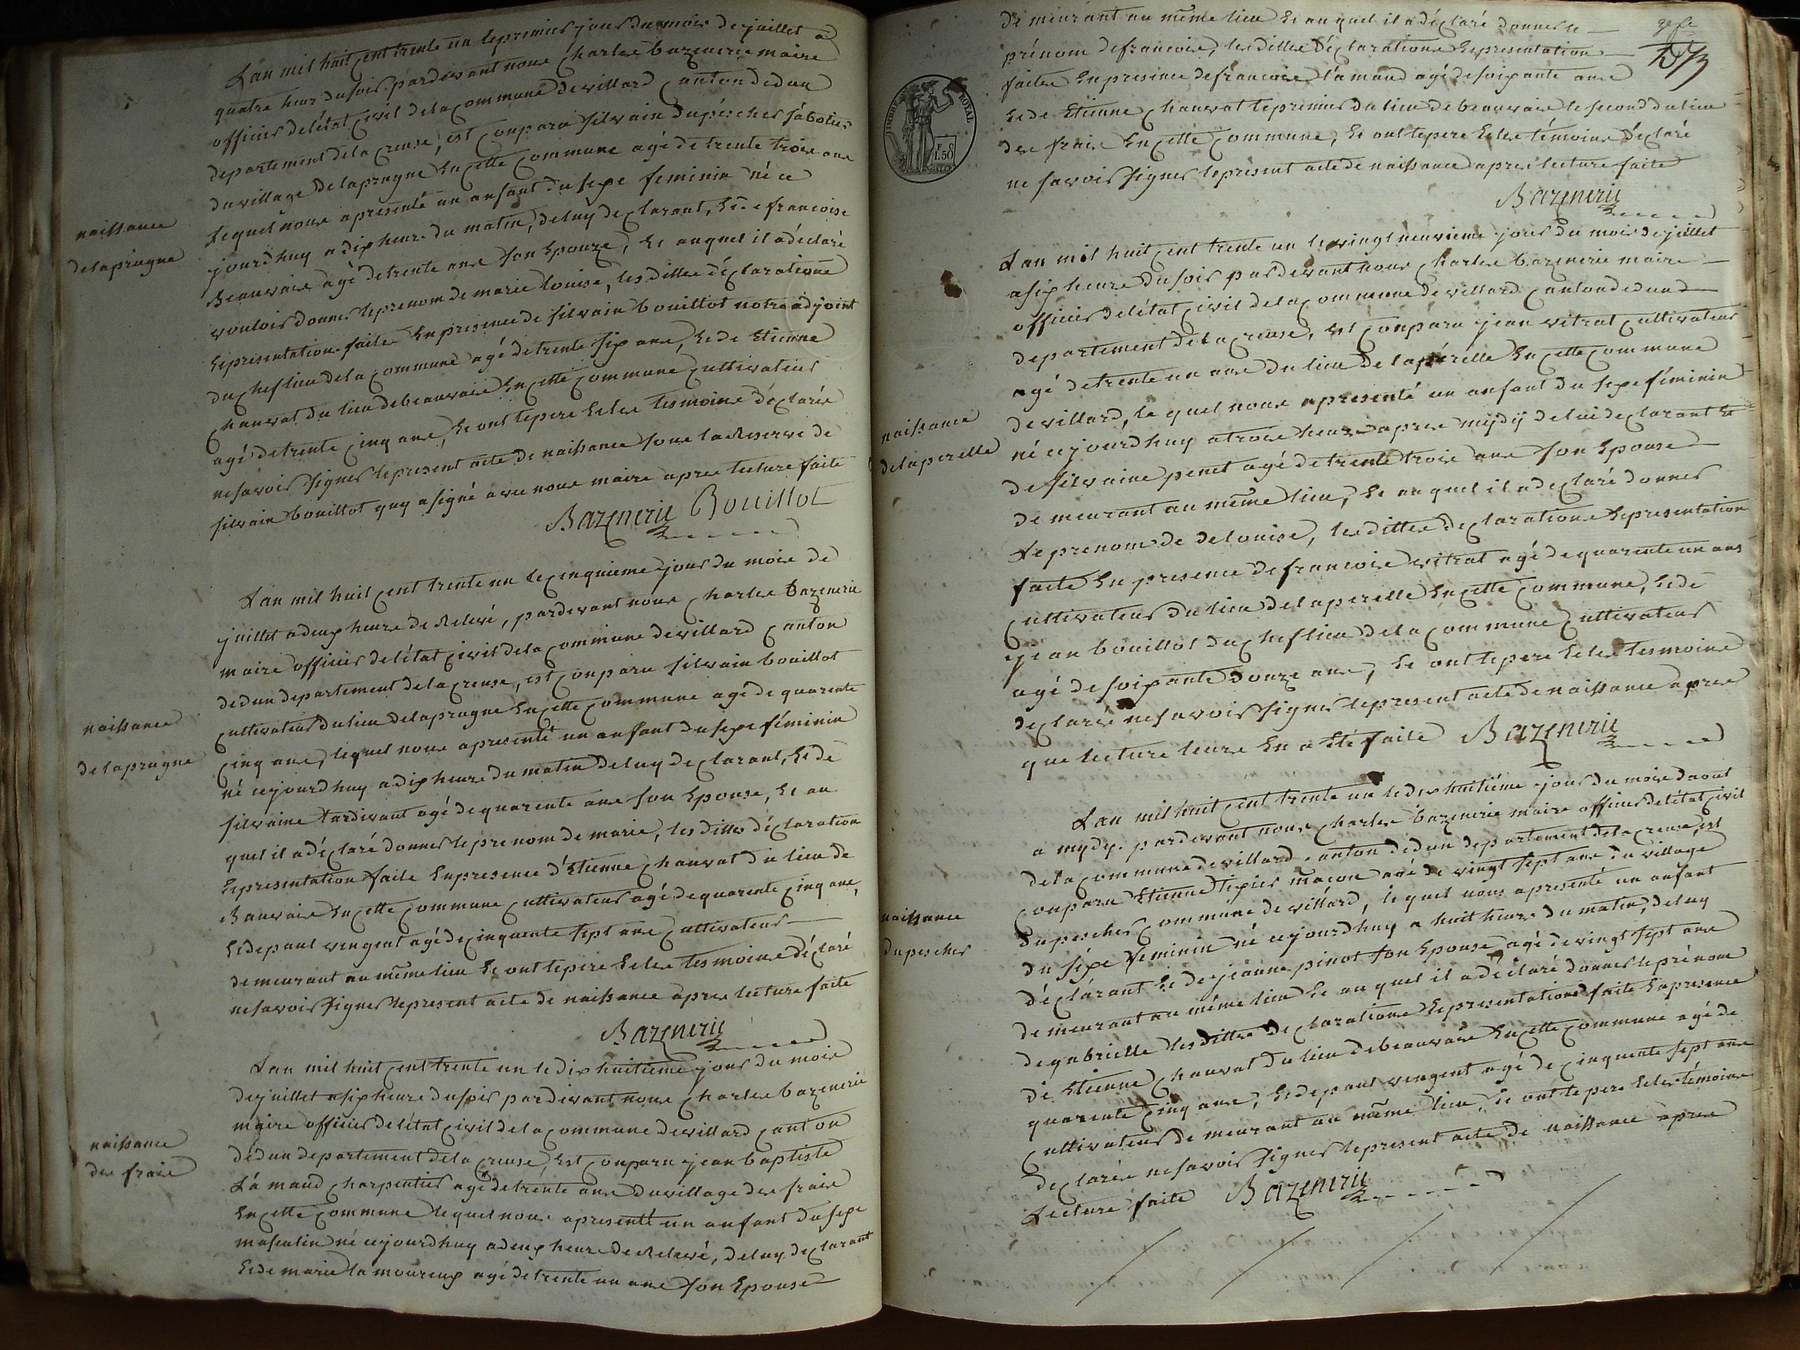 Lan mil huit cent trente un le premier jour du mois de juillet a
quatre heur du soir, pardevant nous Charles bazenerie maire
officier deletat civil delacommune devillard canton dedun
departement delacreuse, est conparu silvain dupeicher sabotier
du village delaprugne en cette commune agé de trente trois ans
lequel nous apresenté un anfant du sexe feminin né ce
jourdhuy adix heure du matin, deluy declarant, et de francoise
Beauvais agé detrente ans son epouze, et auquel il adéclaré
vouloir donner leprenom de marie louise, les dittes déclarations
et presentation faite en presence de silvain bouillot notre adjoint
du cheflieu dela commune agé detrente six ans, et de Etienne
chauvat du lieu debeauvais en cette commune cultivateur
agé detrente cinq ans, et ont lepere et les tesmoins déclarés
nesavoir signer lepresent acte de naissance sous lareserve de
silvain bouillot quy asigné avec nous maire apres lecture faite
Bazenerie Bouillot
naissance
delaprugne
Lan mil huit cent trente un le cinquieme jour du mois de
juillet adeux heure de relevé, pardevant nous Charles bazenerie
maire officier deletat civil dela commune devillard canton
dedun departement delacreuse, est conparu silvain bouillot
cultivateur du lieu delaprugne en cette commune agé de quarente
cinq ans, lequel nous apresenté un anfant du sexe féminin
né cejourdhuy adix heure du matin deluy declarant, et de
silvaine tardivant agé de quarente ans son epouse, et au
quel il adéclaré donner leprenom de marie, les dittes déclaration
et presentation faite en presence d'Etienne chauvat du lieu de
Bauvais en cette commune cultivateur agé dequarente cinq ans,
et depaul vingent agé de cinquente sept ans cultivateur
demeurant au même lieu et ont lepere et les tesmoins déclaré
nesavoir signer lepresent acte de naissance apres lecture faite
Bazenerie
naissance
delaprugne
Lan mil huit cent trente un le dix huitieme jour du mois
dejuillet asix heure du soir pardevant nous Charles bazenerie
maire officier deletat civil dela commune devillard canton
dedun departement dela creuse, est conparu jean baptiste
Lamaud charpentier agé detrente ans du village des frais
en cette commune lequel nous apresenté un anfant du sexe
masculin né cejourdhuy adeux heure de relevé, deluy declarant
et de marie lamoureux agé detrente un ans son epouse
naissance
des frais
demeurant au même lieu et auquel il adéclaré donner le
prénom defrancois, les dittes déclarations et presentation
faites en presence defrancois lamaud agé de soixante ans
et de Etienne chauvat lepremier du lieu de beauvais le second du lieu
des frais en cette commune, et ont lepere et les témoins déclaré
ne savoir signer lepresent acte de naissance apres lecture faite
Bazenerie
TIMBRE ROYAL
Lan mil huit cent trente un le vingt neuvieme jour du mois de juillet
asix heure du soir pardevant nous Charles bazenerie maire
officier deletat civil dela commune devillard canton dedun
departement dela creuse, est conparu jean vitrat cultivateur
agé detrente un ans du lieu de laperelle en cette commune
devillard, le quel nous apresenté un anfant du sexe féminin
né cejourdhuy atrois heure apres mydy de lui declarant et
de silvaine penet agé de trente trois ans son epouse
demeurant au même lieu, et auquel il adeclaré donner
Leprenom de delouise, les dittes declarations et presentation
faite en presence de francois vitrat agé dequarente un ans
cultivateur du lieu delaperelle en cette commune, et de
jean bouillot du chef lieu dela commune cultivateur
agé de soixante douze ans, et ont lepere et les tesmoins
declarés nesavoir signer lepresent acte de naissance apres
que lecture leure en a eté faite Bazenerie
naissance
delaperelle
Lan mil huit cent trente un le dix huitiéme jour du mois daout
a mydy. pardevant nous Charles bazenerie maire officier deletat civil
dela commune devillard canton dedun departement delacreuse, est
conparu Etienne tixier maçon agé de vingt sept ans du village
dupescher commune de villard, lequel nous apresenté un anfant
du sexe feminin né cejourdhuy a huit heure du matin, deluy
déclarant et de jeanne pinot son epouse agé devingt sept ans
demeurant au même lieu et auquel il adéclaré donner leprénom
degabrielle les dittes declarations et presentations faite enpresence
de Etienne chauvat du lieu debeauvais en cette commune agé de
quarente cinq ans, et depaul vingent agé de cinquente sept ans
cultivateur demeurant au même lieu, et ont lepere et les témoins
declarés nesavoir signer lepresent acte de naissance apres
Lecture faite Bazenerie
naissance
dupescher